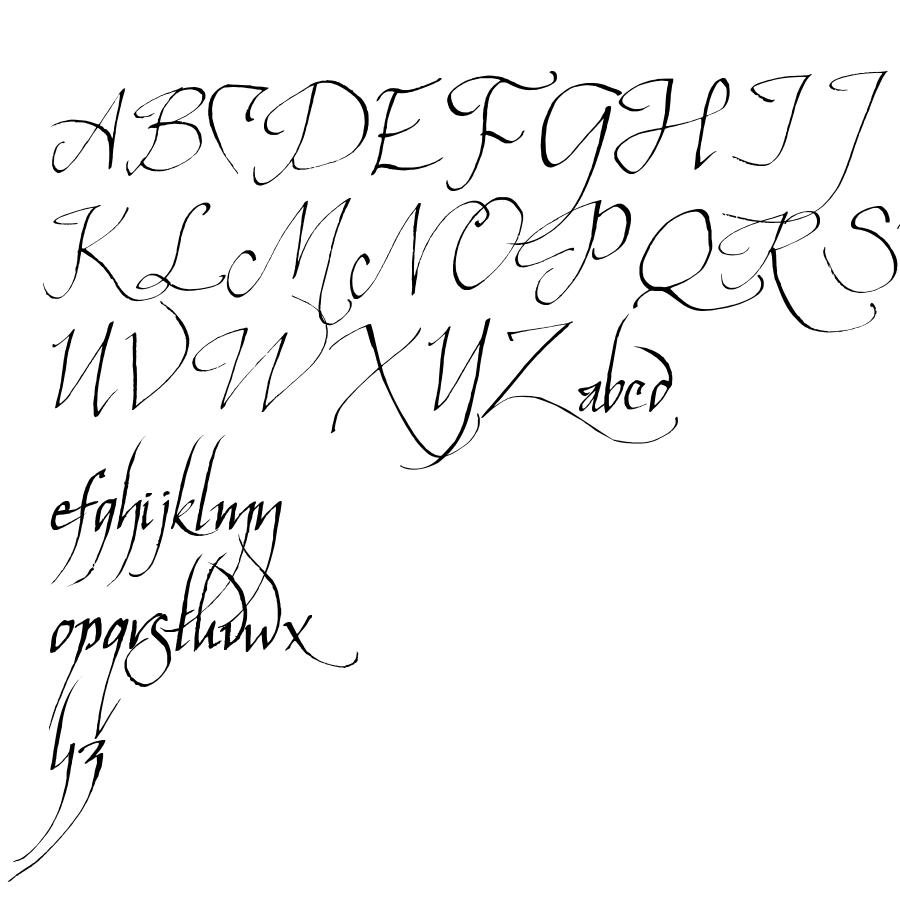 ABCDEFGHIJ
KLMNOPQRS
UVWXYZabcd
efghijklmn
opqrstuvwx
yz